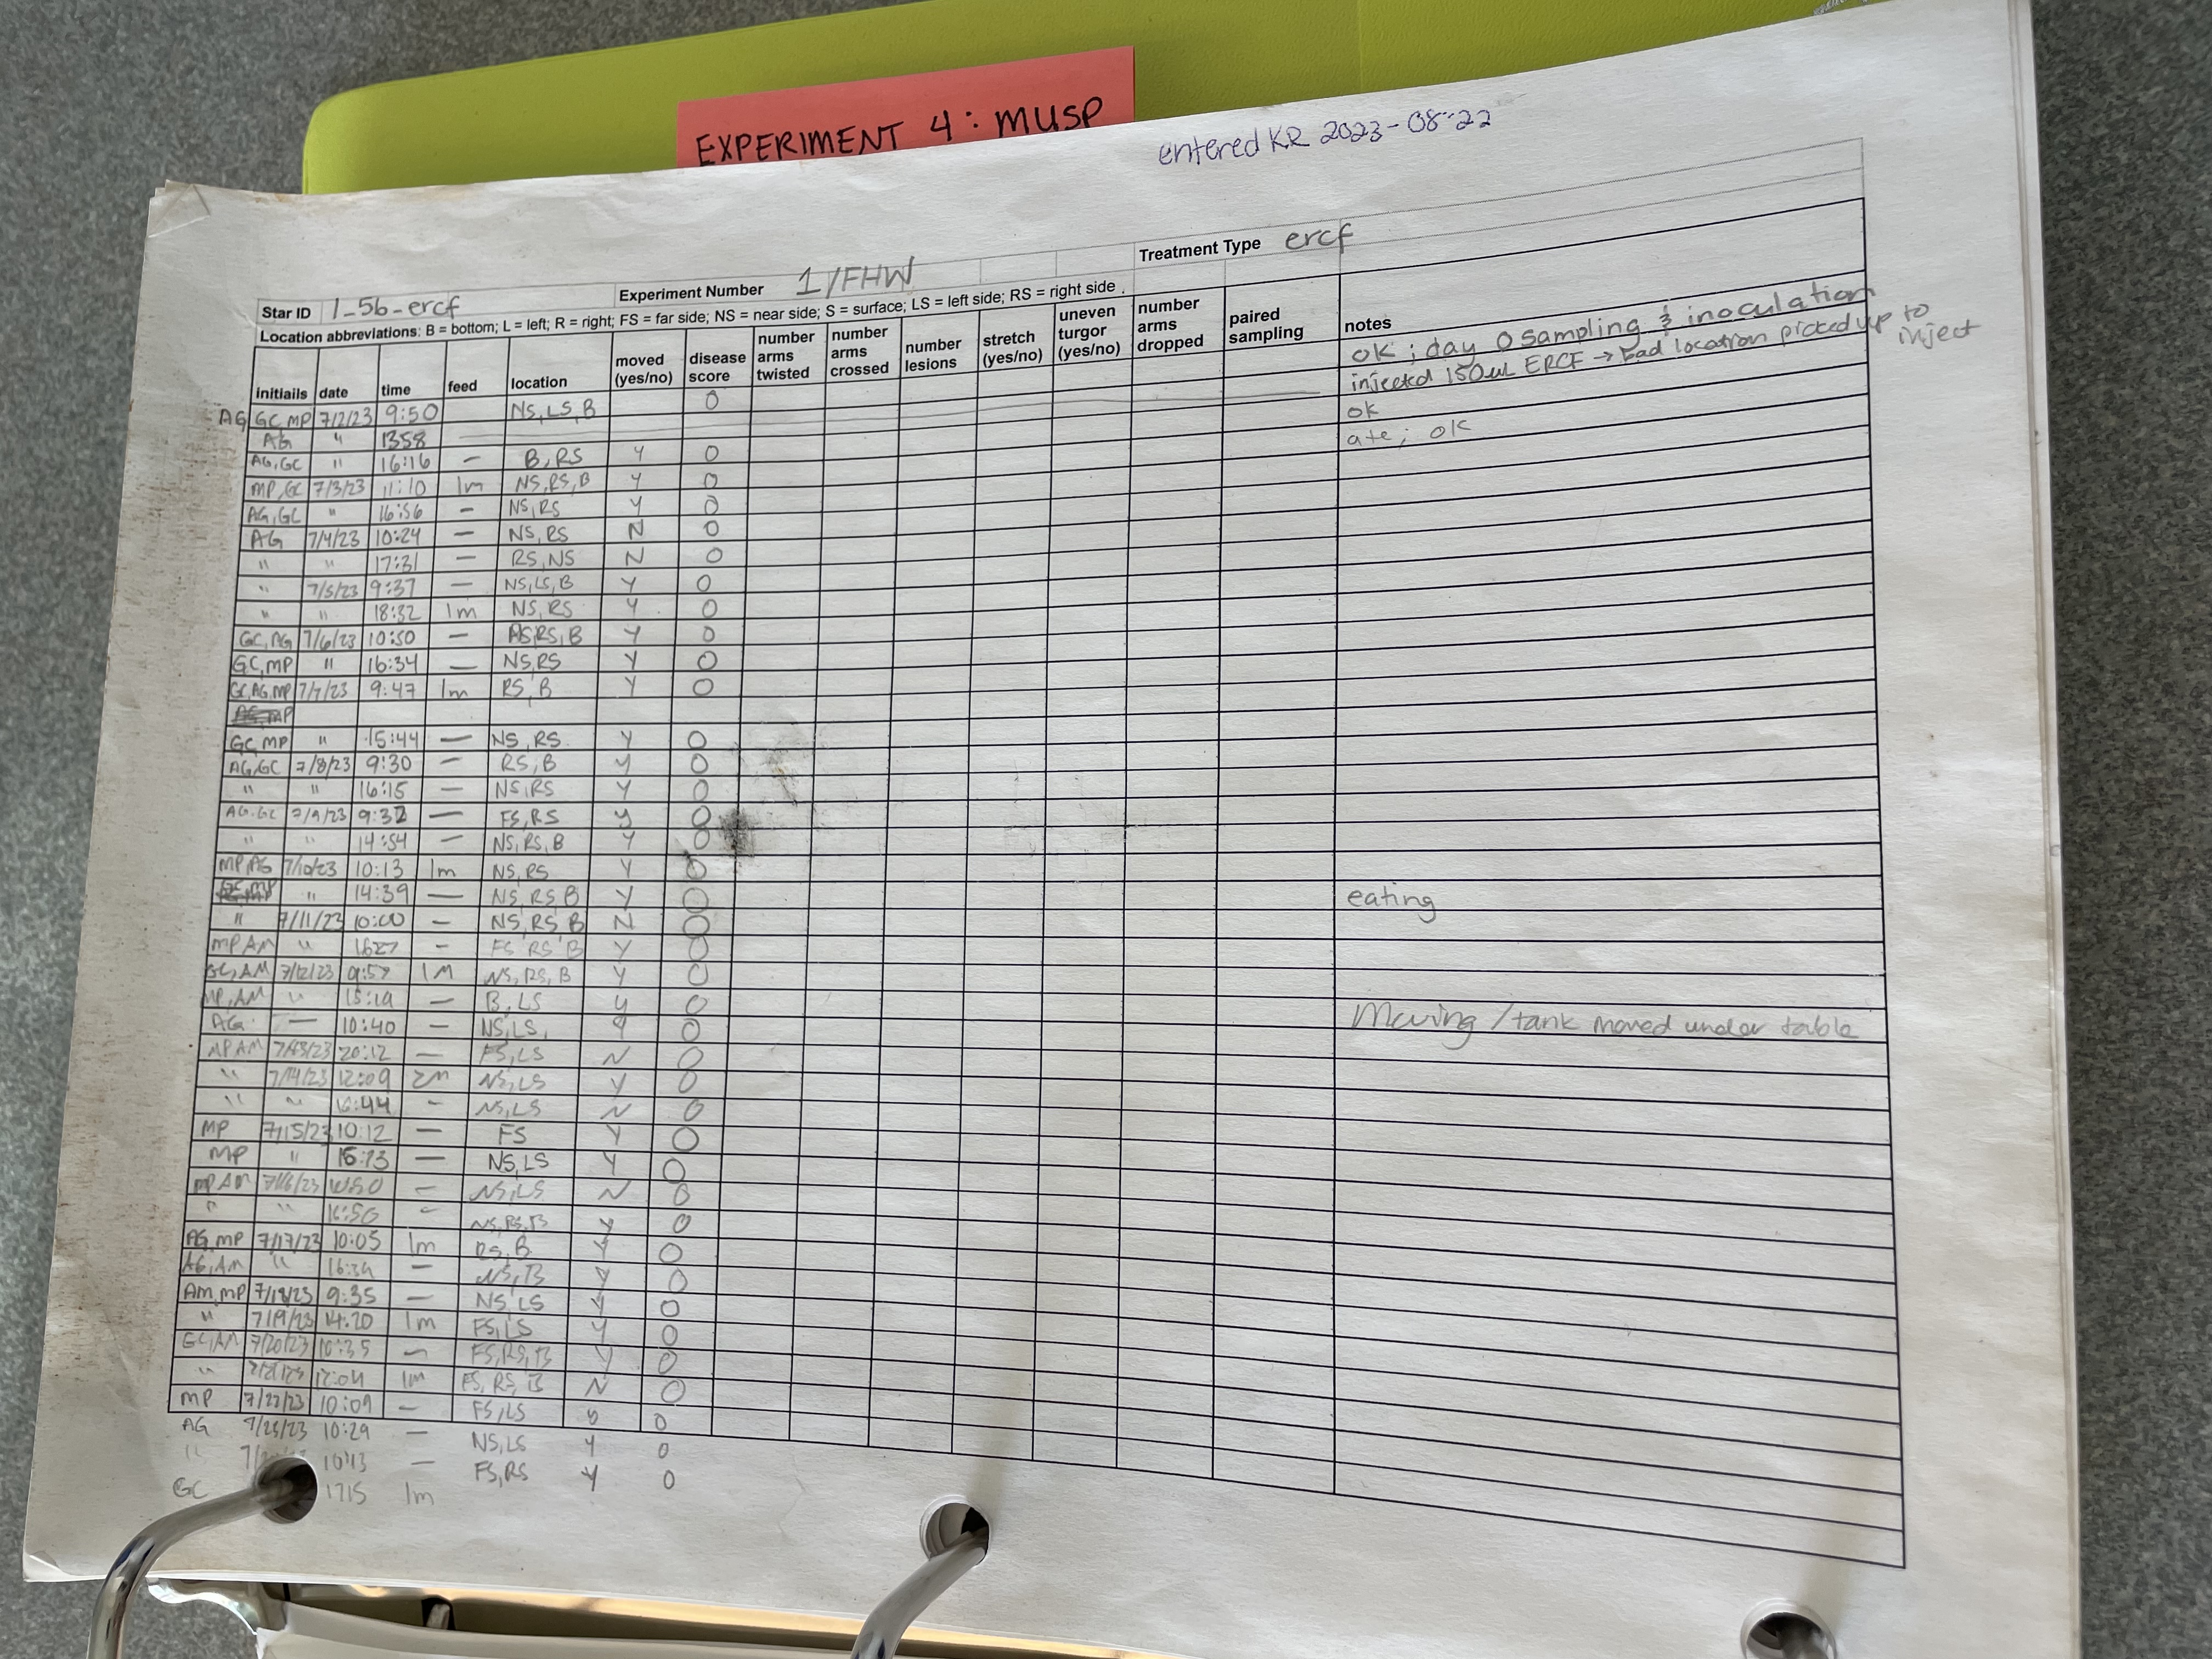 EXPERIMENT 4: MUSP
entered KR 2023-08-22
Star ID 1_56_ercf Experiment Number 1/FHW Treatment Type ercf
Location abbreviations: B = bottom; L = left; R = right; FS = far side; NS = near side; S = surface; LS = left side; RS = right side .
initiails date time feed location moved (yes/no) disease score number arms twisted number arms crossed number lesions stretch (yes/no) uneven turgor (yes/no) number arms dropped paired sampling notes
AG GC,MP 7/2/23 9:50 NS,LS,B 0 ok; day 0 sampling & inoculation
AG " 1358 injected 150uL ERCF → bad location picked up to inject
AG,GC " 16:16 — B,RS Y 0 ok
MP,GC 7/3/23 11:10 1m NS,RS,B Y 0 ate; ok
AG,GC " 16:56 — NS,RS Y 0
AG 7/4/23 10:24 — NS,RS N 0
" " 17:31 — RS,NS N 0
" 7/5/23 9:37 — NS,LS,B Y 0
" " 18:32 1m NS,RS Y 0
GC,AG 7/6/23 10:50 — RS,B Y 0
GC,MP " 16:34 — NS,RS Y 0
GC,AG,MP 7/7/23 9:47 1m RS,B Y 0
GC,MP " 15:44 — NS,RS Y 0
AG,GC 7/8/23 9:30 — RS,B Y 0
" " 16:15 — NS,RS Y 0
AG,GC 7/9/23 9:32 — FS,RS Y 0
" " 14:54 — NS,RS,B Y 0
MP,AG 7/10/23 10:13 1m NS,RS Y 0
" 14:39 — NS,RS,B Y 0 eating
" 7/11/23 10:00 — NS,RS,B N 0
MP,AM " 1627 — FS,RS,B Y 0
GC,AM 7/12/23 9:57 1M NS,RS,B Y 0
MP,AM " 15:19 — B,LS Y 0
AG — 10:40 — NS,LS, Y 0 Moving /tank moved under table
MP,AM 7/13/23 20:12 — FS,LS N 0
" 7/14/23 12:09 2m NS,LS Y 0
" " 16:44 — NS,LS N 0
MP 7/15/23 10:12 — FS Y 0
MP " 16:13 — NS,LS Y 0
MP,AM 7/16/23 — NS,LS N 0
" " 16:50 — NS,RS,B Y 0
AG,MP 7/17/23 10:05 1m RS,B Y 0
AG,AM " 16:39 — NS,B Y 0
AM,MP 7/18/23 9:35 — NS,LS Y 0
" 7/19/23 14:20 1m FS,LS Y 0
GC,AM 7/20/23 10:35 — FS,RS,B Y 0
" 7/21/23 12:04 1m FS,RS,B N 0
MP 7/22/23 10:09 — FS,LS Y 0
AG 10:29 — NS,LS Y 0
" 10:13 — FS,RS Y 0
GC 1715 1m